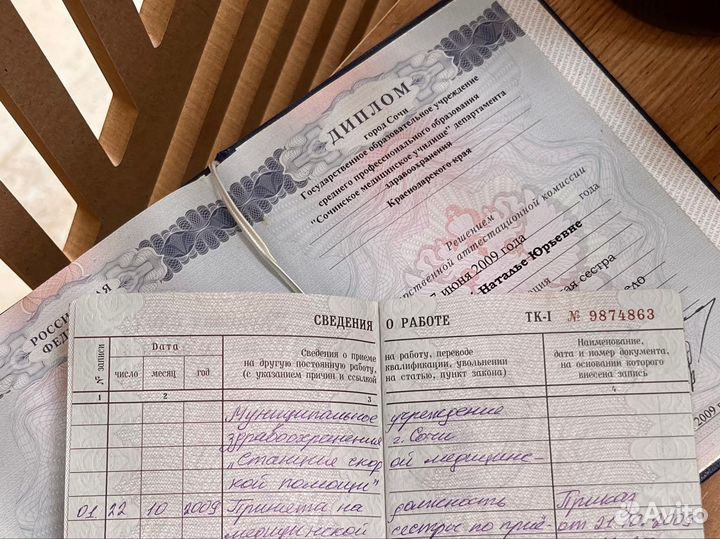 ДИПЛОМ
город Сочи
Государственное образовательное учреждение
среднего профессионального образования
"Сочинское медицинское училище" департамента
здравоохранения
Краснодарского края
Решением
аттестационной комиссии
июня 2009 года
года
Наталье Юрьевне
сестра
СВЕДЕНИЯ О РАБОТЕ
ТК-I № 9874863
№ записи
Дата
число
месяц
год
Сведения о приеме на работу, переводе
на другую постоянную работу, квалификации, увольнении
(с указанием причин и ссылкой на статью, пункт закона)
Наименование,
дата и номер документа,
на основании которого
внесена запись
1
2
3
4
Муниципальное учреждение
здравоохранения г. Сочи
"Станция скорой медицинс-
кой помощи"
01 22 10 2009 Принята на должность Приказ
медицинской сестры по приё-
Avito